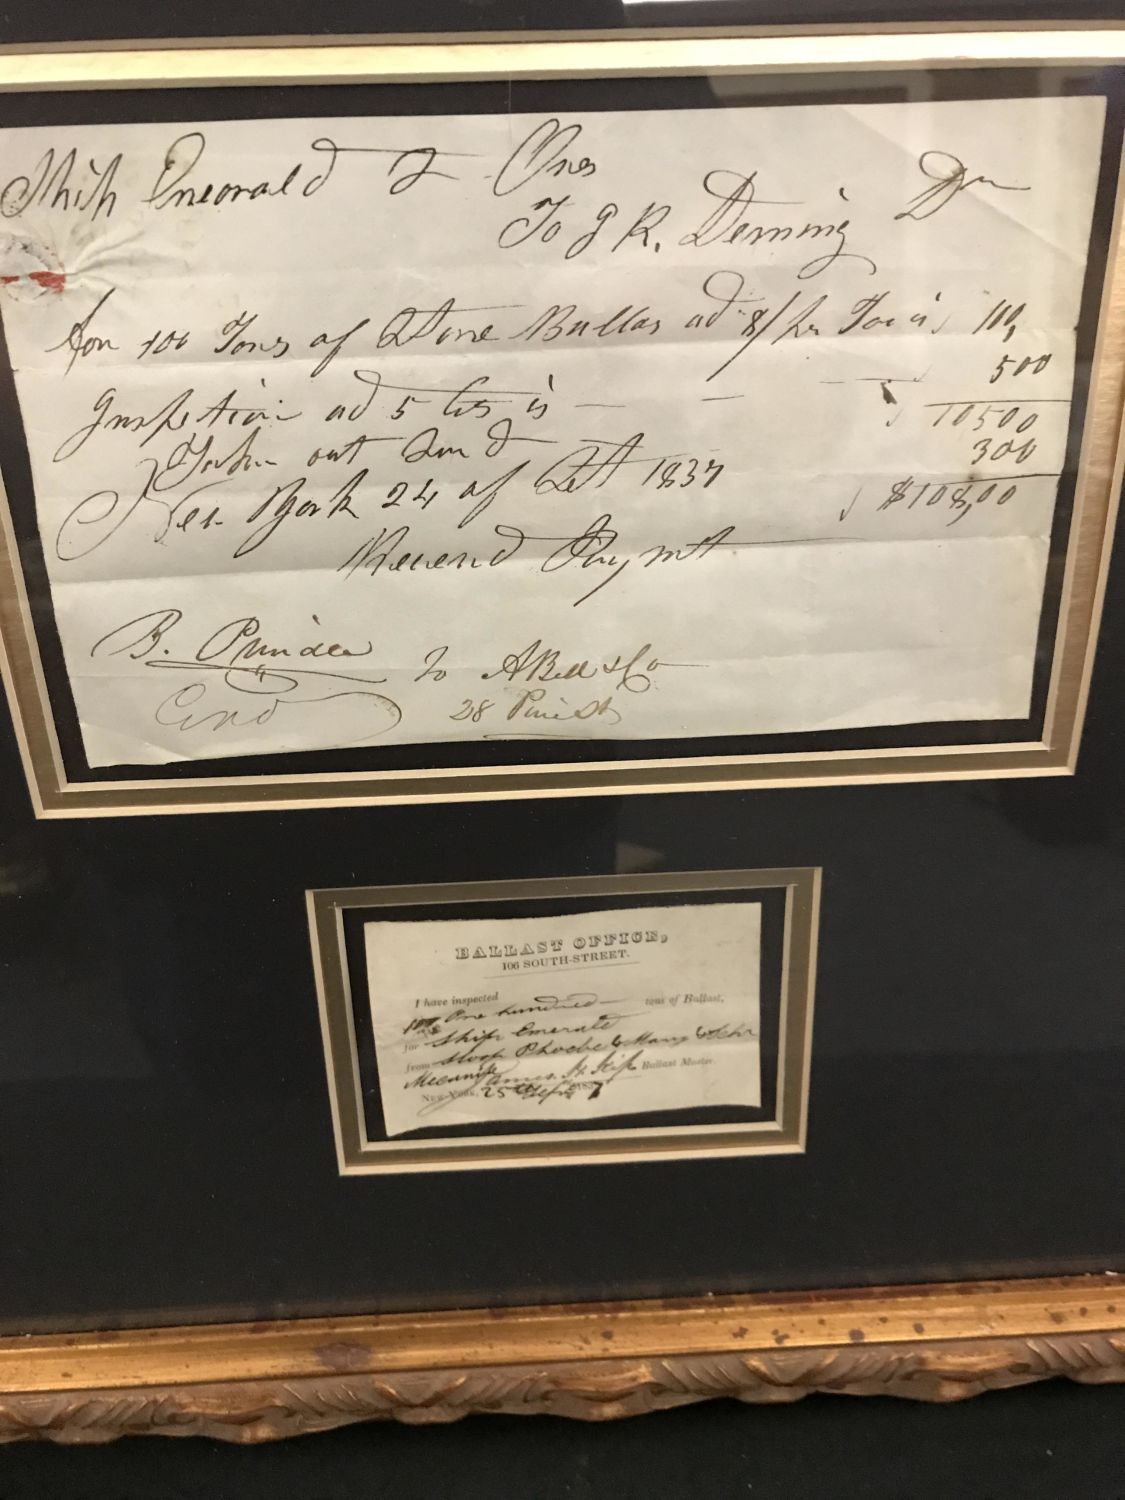 Ship Emerald & Ones
To J R. Deming Dr
for 100 Tons of Stone Ballas ad 8/ per Ton is 100,
500
Inspetion ad 5 cts is 10500
Taken out Sand 300
New York 24 of 1837 $108,00
Received Paymt
B. to A Bell & Co
28 Pine St
BALLAST OFFICE,
106 SOUTH-STREET.
I have inspected
100 One hundred tons of Ballast,
for Ship Emerald
from Sloop Phoebe & Mary & Schr
Mecanik James H. Kip Ballast Master.
New-York, 25th Sept 1837